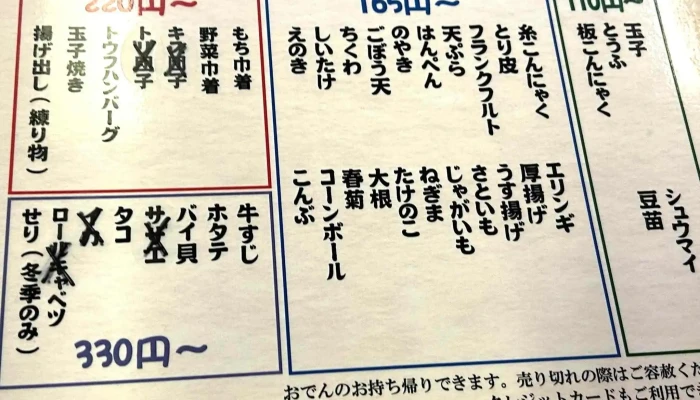 110円～
玉子
とうふ
板こんにゃく
シュウマイ
豆苗
165円～
糸こんにゃく
とり皮
フランクフルト
天ぷら
はんぺん
のやき
ごぼう天
ちくわ
しいたけ
えのき
エリンギ
厚揚げ
うす揚げ
さといも
じゃがいも
ねぎま
たけのこ
大根
春菊
コーンボール
こんぶ
220円～
もち巾着
野菜巾着
トウフハンバーグ
玉子焼き
揚げ出し(練り物)
牛すじ
ホタテ
バイ貝
タコ
ロールキャベツ
せり(冬季のみ)
330円～
おでんのお持ち帰りできます。売り切れの際はご容赦くだ
クレジットカードもご利用で